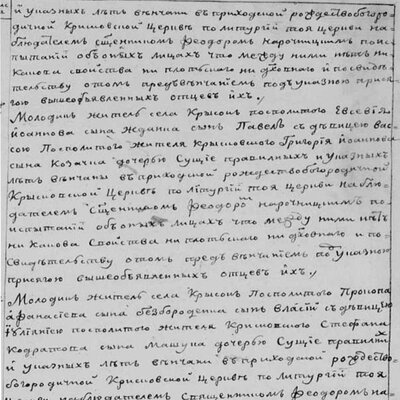 и указныхъ лѣтъ вѣнчаны въ приходской рождествобогоро
дичной Крисовской Церквѣ по литургіи тоя Церкви на
блюдателемъ священникомъ Феодоромъ нарочницкимъ по ис
пытаніи обоихъ лицахъ что между ними нѣтъ ни
какова свойства ни плотьскаго ни духовнаго и посвидѣ
тельству отомъ предъ вѣнчаніемъ подъ указною прися
гою вышеобъявленныхъ отцевъ ихъ
Молодикъ житель села Крысокъ посполитого Евсевія
Іоаннова сына Жданка сынъ Павелъ съ дѣвицею вас
сою Посполитого жителя Крысовского Григорія Іоаннова
сына Козачка дочерью Сущіе правилныхъ и указныхъ
лѣтъ вѣнчаны въ приходской рождествобогородичной
Крысовской Церквѣ по литургіи тоя Церкви наблю
дателемъ Священникомъ Феодоромъ нарочницкимъ по
испытаніи обоихъ лицахъ что между ними нѣтъ
ни какова Свойства ни плотьскаго ни духовнаго и по
Свидѣтельству отомъ предъ вѣнчаніемъ подъ указною
присягою вышеобъявленныхъ отцевъ ихъ
Молодикъ житель села Крысокъ Посполитого Прокопа
Афанасіева сына безбородька сынъ Власій съ дѣвицею
посполитого жителя Крисовского Стефана
Кодратова сына Машука дочерью Сущіе правилныхъ
и указныхъ лѣтъ вѣнчаны въ приходской рождество
богородичной Крисовской Церквѣ по литургіи тоя
Церкви наблюдателемъ Священникомъ Феодоромъ на